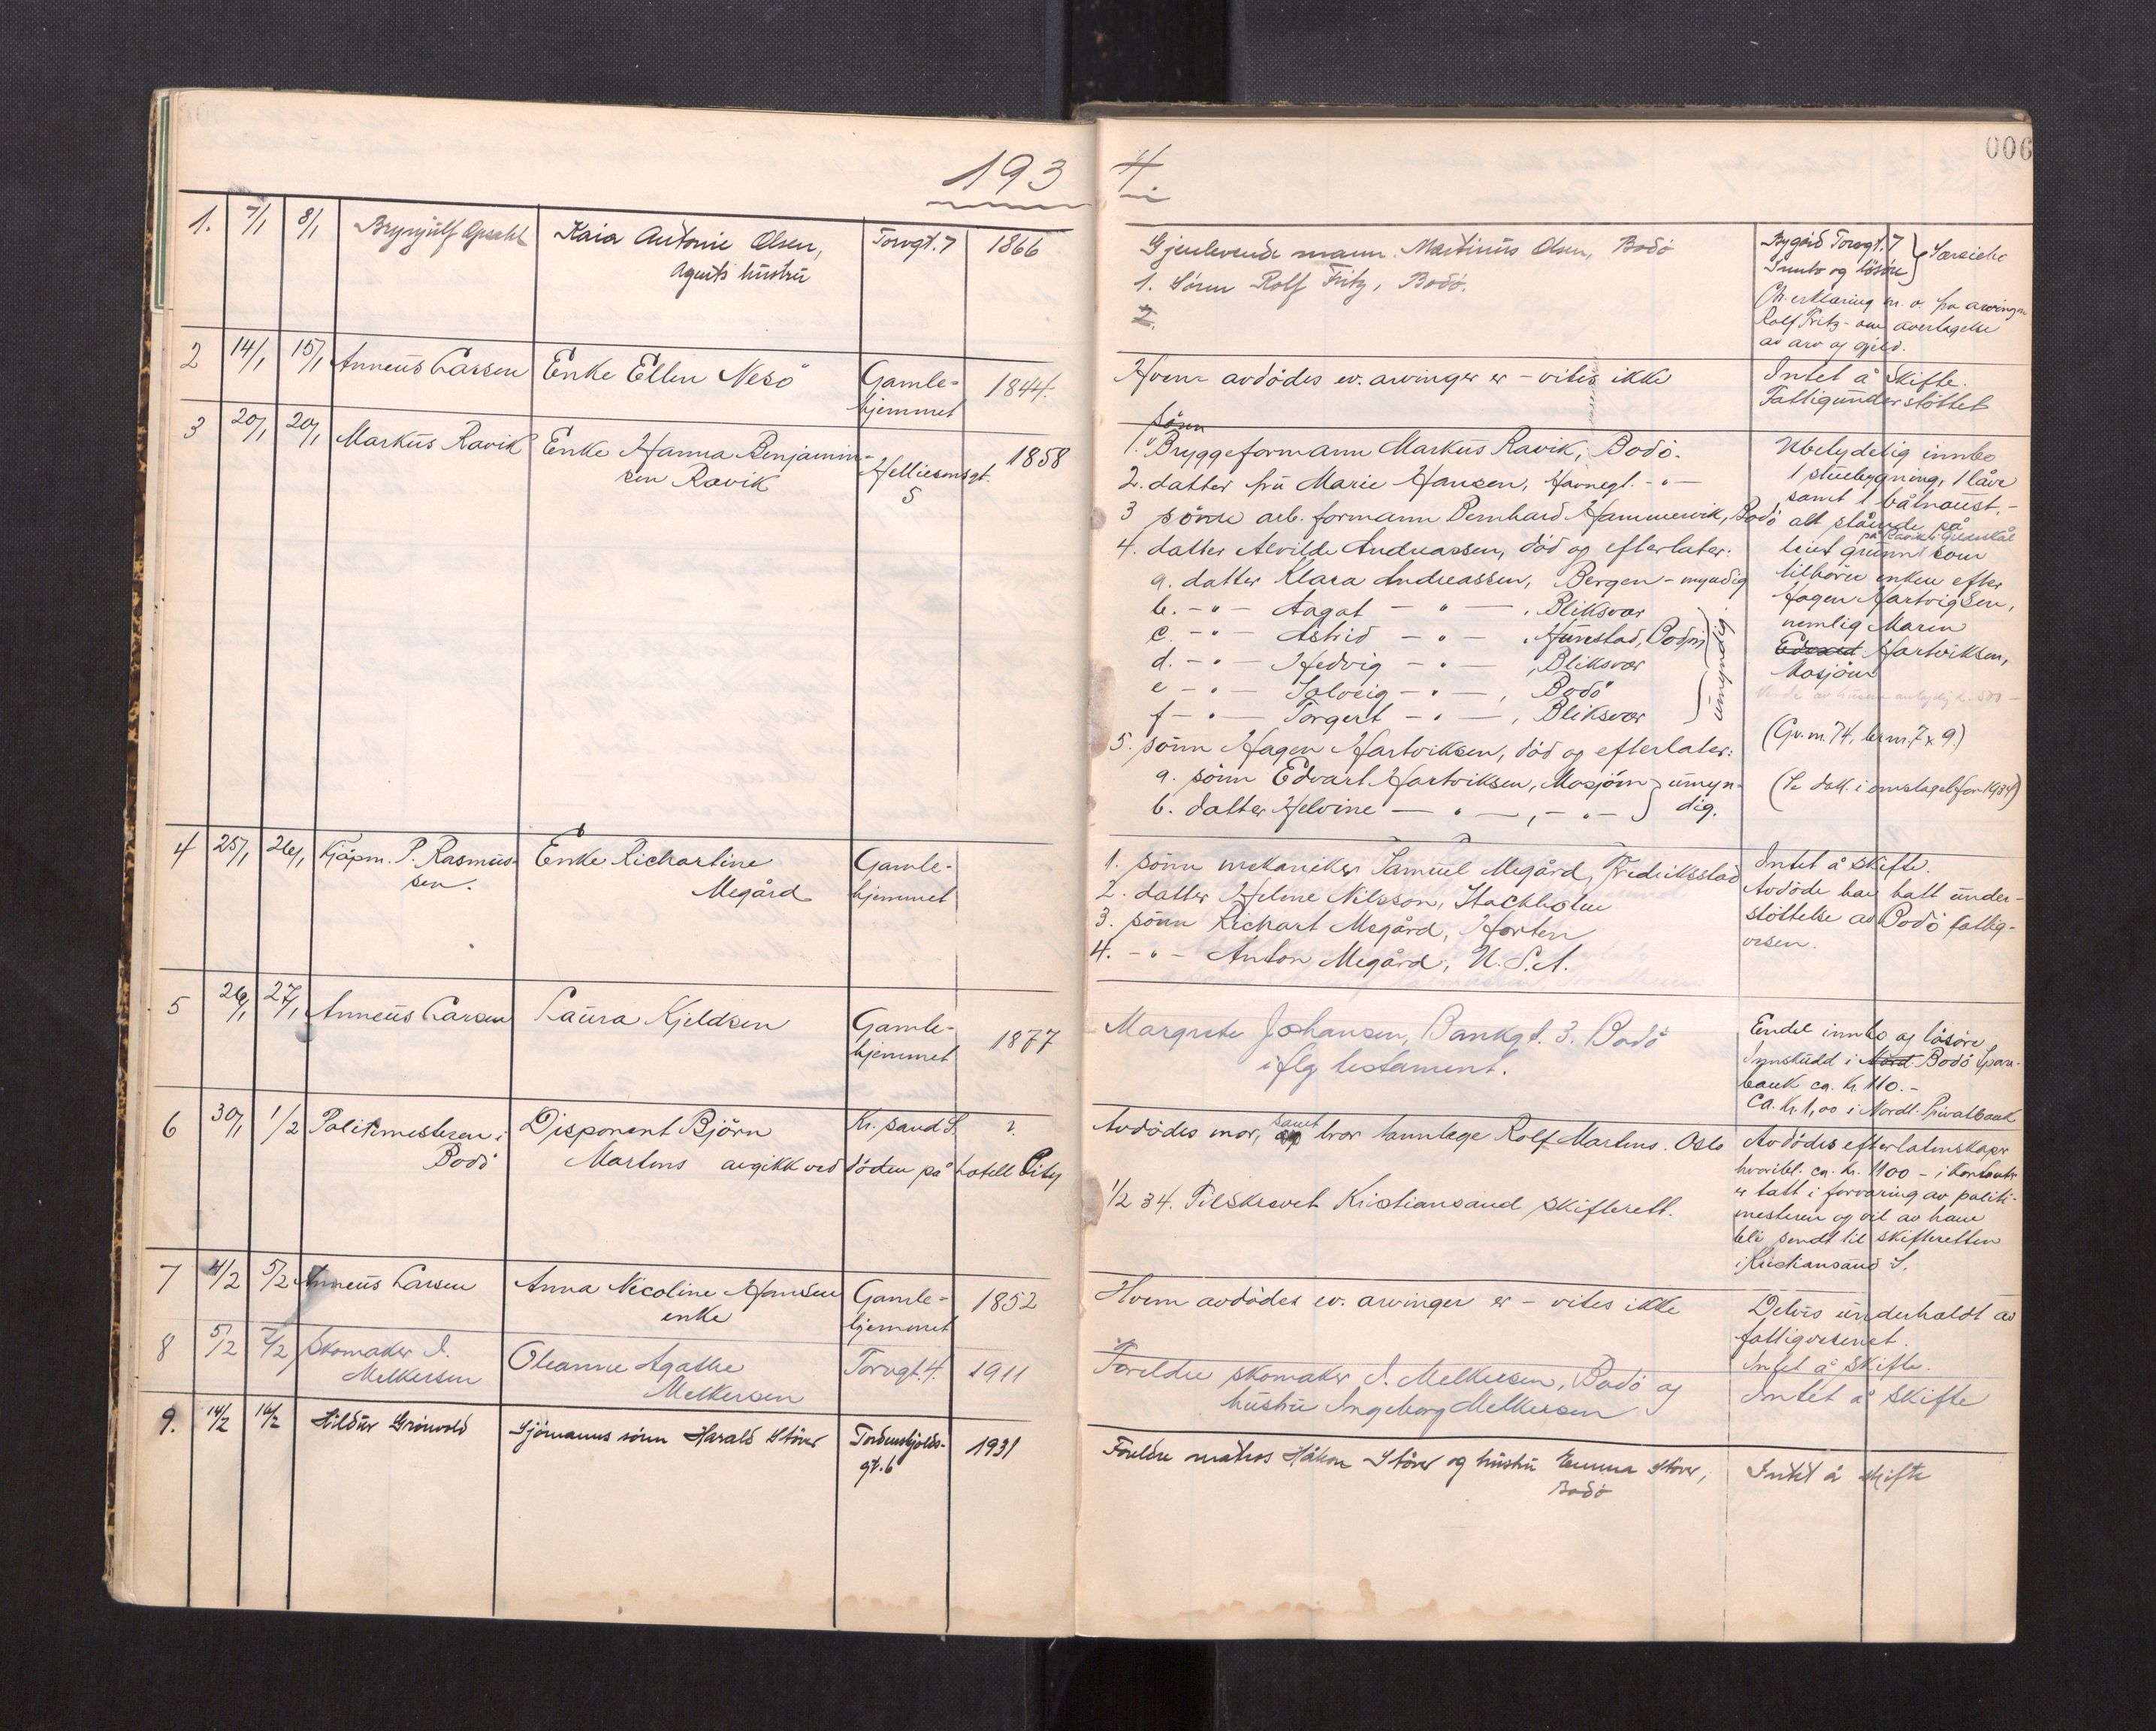 193
4
006
1. 7/1 8/1 Brynjulf Opsahl Kaia Antonie Olsen, Torvgt. 7 1866
Agents hustru
Gjenlevende mann Martinus Olsen, Bodö
1. Sönn Rolf Fritz, Bodö.
2.
Bygård Torvgt. 7
Innbo og lösöre } Særeie
erklæring m. v. fra arvingen
Rolf Fritz om overtagelse
av arv og gjeld.
2 14/1 15/1 Anneus Larsen Enke Ellen Nesö Gamle- 1844.
hjemmet
Hvem avdödes ev. arvinger er - vites ikke
Intet å skifte.
Fattigunderstöttet
3 20/1 20/1 Markus Ravik Enke Hanna Benjamin- Helliesensgt. 1858
sen Ravik 5
sönn
1. Bryggeformann Markus Ravik, Bodö.
2. datter fru Marie Hansen, Havnegt. - " -
3 sönn arb. formann Bernhard Hammervik, Bodö
4. datter Alvilde Andreassen, död og efterlater:
a. datter Klara Andreassen, Bergen - myndig
b. - " - Aagot - " - , Bliksvær
c. - " - Astrid - " - , Hunstad, Bodin
d. - " - Hedvig - " - , Bliksvær
e - " - Solveig - " - , Bodö
f - " - Torgert - " - , Bliksvær
umyndig.
5. sönn Hagen Hartviksen, död og efterlater:
a. sönn Edvart Hartviksen, Mosjöen } umyn-
b. datter Helvine - " - , - " - } dig.
Ubetydelig innbo
1 stuebygning, 1 låve
samt 1 båtnaust, -
alt stående på
på Ravik i Gildeskål
leiet grunn som
tilhörer enken efter
Hagen Hartvigsen,
nemlig Maren
Edvard Hartviksen,
Mosjöen
(Gv. nr. 74, br. nr. 7 x 9.)
(Se dok. i omslaget for 1934)
4 25/1 26/1 Kjöpm. P. Rasmus- Enke Richartine Gamle-
sen. Megård hjemmet
1. sönn mekaniker Samuel Megård, Fredriksstad
2. datter Helene Nilsson, Stockholm
3. sönn Richart Megård, Horten
4. - " - Anton Megård, U.S.A.
Intet å skifte.
Avdöde har hatt under-
stöttelse av Bodö fattig-
vesen.
5 26/1 27/1 Anneus Larsen Laura Kjeldsen Gamle- 1877
hjemmet
Margrete Johansen, Bankgt. 3. Bodö
iflg testament.
Endel innbo og lösöre
Innskudd i Nord Bodö Spare-
bank ca. kr. 110.-
Ca. kr. 1,00 i Nordl. Privatbank
6 30/1 1/2 Politimesteren i Disponent Björn Kr.sand S. ?
Bodö Martens avgikk ved döden på hotell City
Avdödes mor, samt bror tannlege Rolf Martens. Oslo
1/2 34. Tilskrevet Kristiansand skifterett.
Avdödes efterlatenskaper
hvoribl. ca. kr. 1100 - i kontanter
er tatt i forvaring av politi-
mesteren og vil av ham
bli sendt til skifteretten
i Kristiansand S.
7 4/2 5/2 Anneus Larsen Anna Nicoline Hansen Gamle- 1852
enke hjemmet
Hvem avdödes ev. arvinger er - vites ikke
Delvis underholdt av
fattigvesenet.
Intet å skifte.
8 5/2 7/2 Skomaker I. Oleanne Agathe Torvgt. 4. 1911
Melkersen Melkersen
Foreldre skomaker I. Melkersen, Bodö og
hustru Ingeborg Melkersen
Intet å skifte
9. 14/2 16/2 Hildur Grönvold Sjömanns sönn Harald Stöver Tordenskjolds- 1931
gt. 6
Foreldre matros Håkon Stöver og hustru Emma Stöver,
Bodö
Intet å skifte